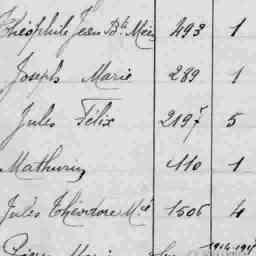 Théophile Jean Bte Marie 493 1
Joseph Marie 289 1
Jules Félix 2197 5
Mathurin 110 1
Jules Théodore Mie 1506 4